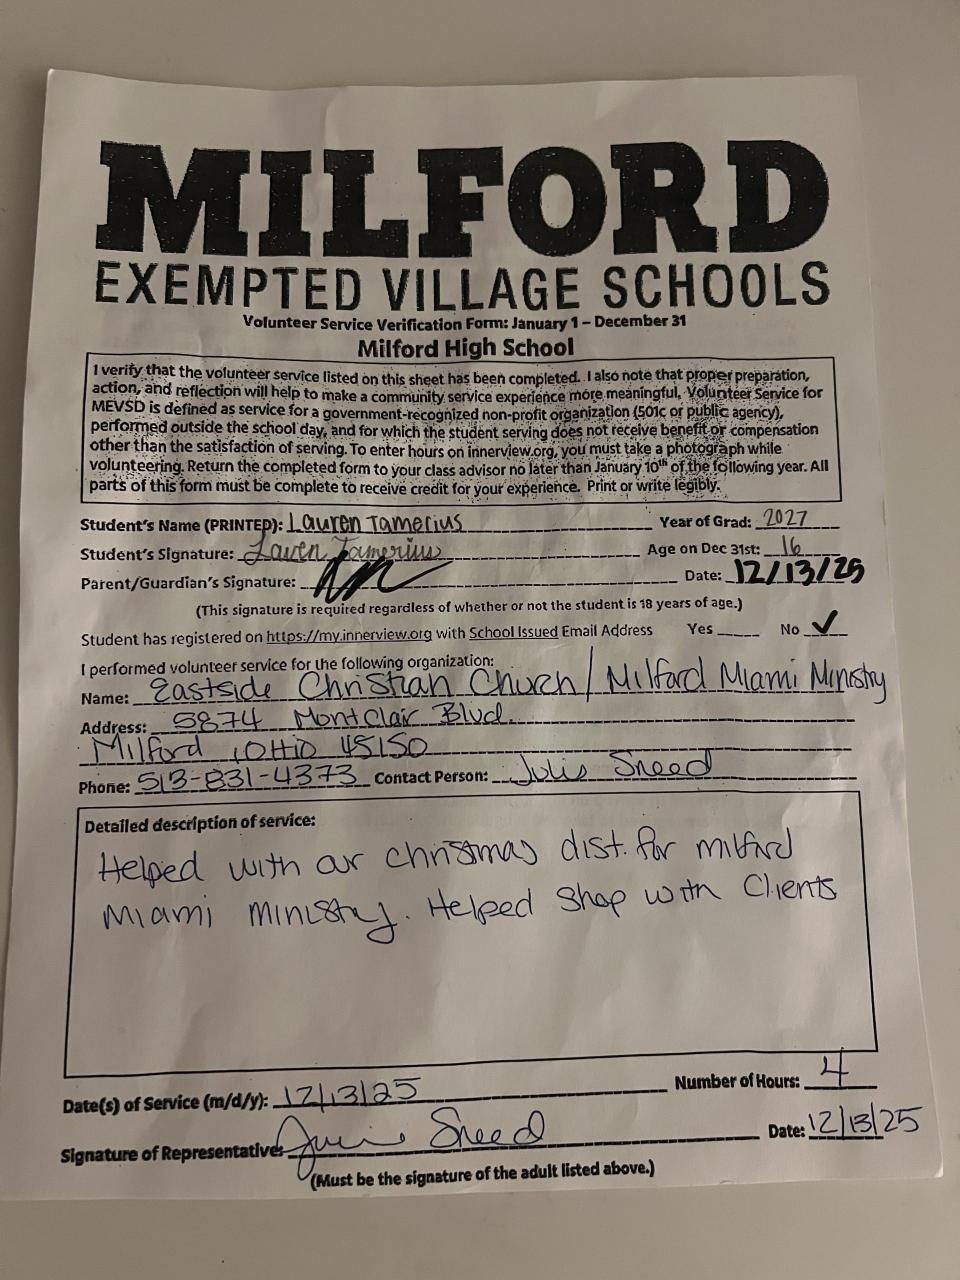 MILFORD
EXEMPTED VILLAGE SCHOOLS
Volunteer Service Verification Form: January 1 – December 31
Milford High School
I verify that the volunteer service listed on this sheet has been completed. I also note that proper preparation,
action, and reflection will help to make a community service experience more meaningful. Volunteer Service for
MEVSD is defined as service for a government-recognized non-profit organization (501c or public agency),
performed outside the school day, and for which the student serving does not receive benefit or compensation
other than the satisfaction of serving. To enter hours on innerview.org, you must take a photograph while
volunteering. Return the completed form to your class advisor no later than January 10th of the following year. All
parts of this form must be complete to receive credit for your experience. Print or write legibly.
Student's Name (PRINTED): Lauren Tamerius Year of Grad: 2027
Student's Signature: Lauren Tamerius Age on Dec 31st: 16
Parent/Guardian's Signature: Date: 12/13/25
(This signature is required regardless of whether or not the student is 18 years of age.)
Student has registered on https://my.innerview.org with School Issued Email Address Yes No ✓
I performed volunteer service for the following organization:
Name: Eastside Christian Church / Milford Miami Ministry
Address: 5874 Montclair Blvd.
Milford, OHIO 45150
Phone: 513-831-4373 Contact Person: Julis Sneed
Detailed description of service:
Helped with our christmas dist. for milford
Miami Ministry. Helped Shop with Clients
Date(s) of Service (m/d/y): 12/13/25 Number of Hours: 4
Signature of Representative: Sneed Date: 12/13/25
(Must be the signature of the adult listed above.)